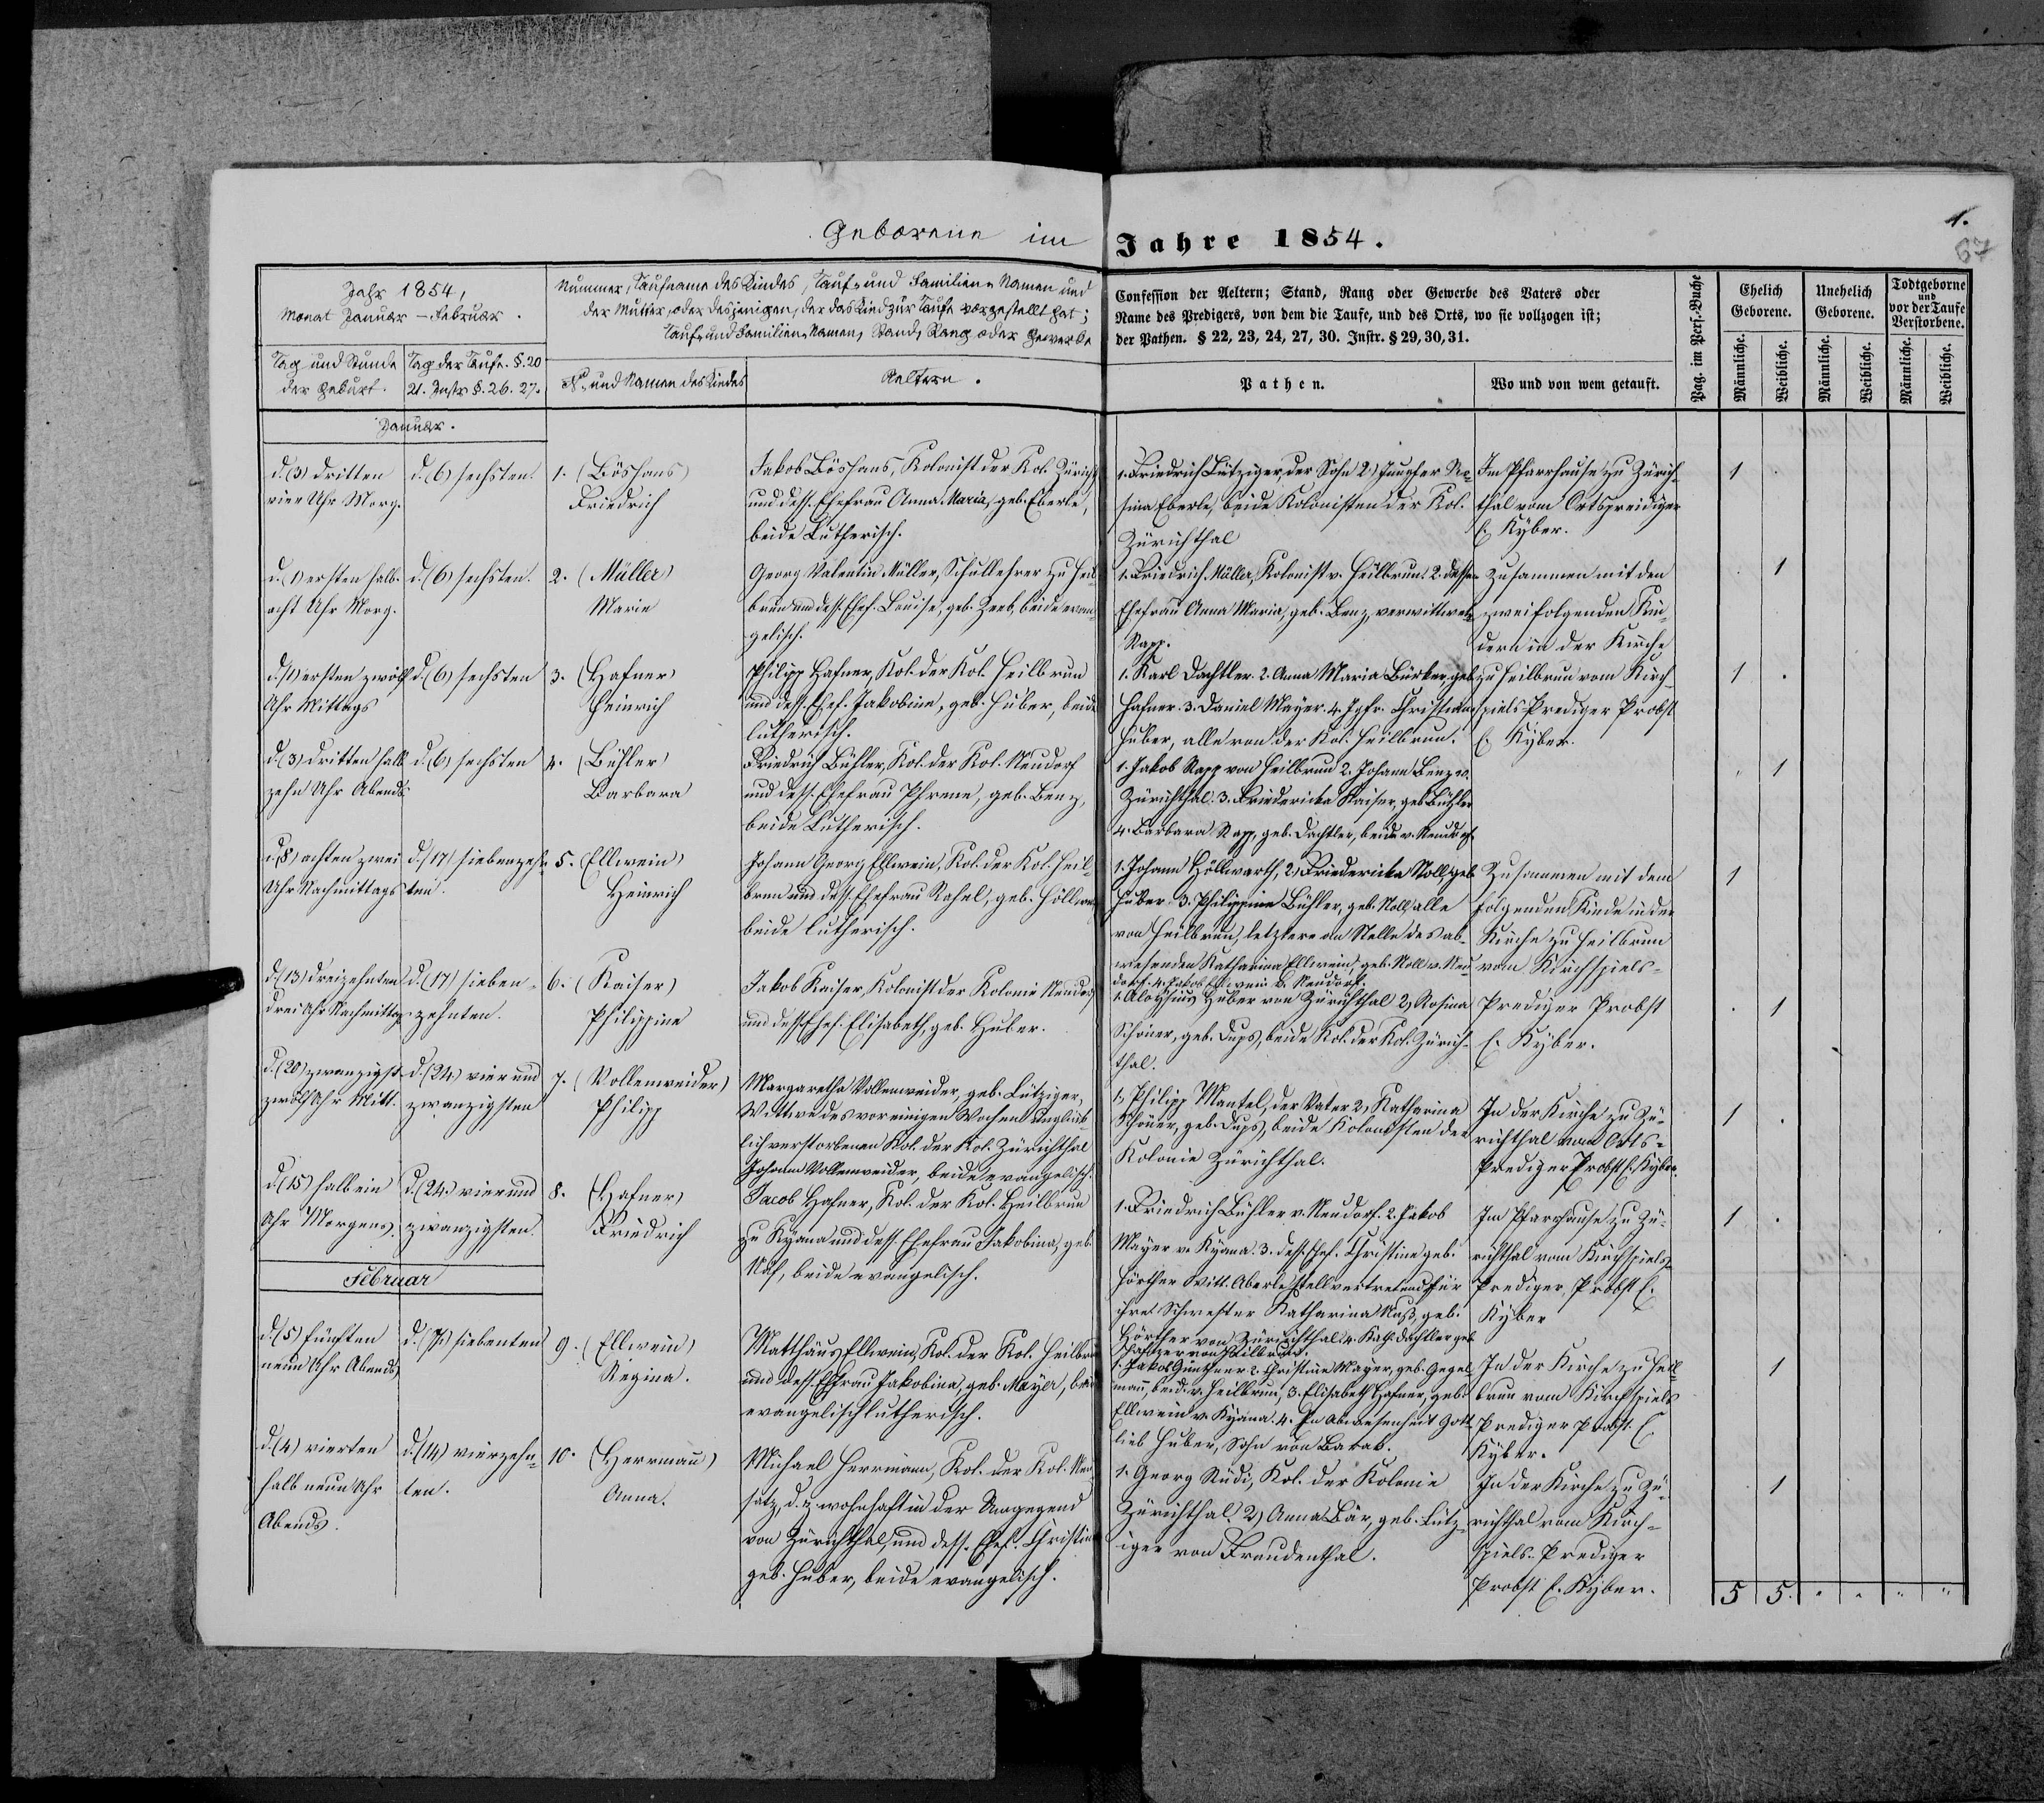 Geborene im Jahre 1854.
1.
67
Jahr 1854,
Monat Januar – Februar.
Nummer, Taufname des Kindes, Tauf- und Familien-Namen und
der Mutter, oder desjenigen, der das Kind zur Taufe vorgestellt hat;
Tauf- und Familien-Namen, Stand, Rang oder Gewerbe
Tag und Stunde
der Geburt.
Tag der Taufe. §. 20
21. Instr. §. 26. 27.
No. und Namen des Kindes
Aeltern.
Confession der Aeltern; Stand, Rang oder Gewerbe des Vaters oder
Name des Predigers, von dem die Taufe, und des Orts, wo sie vollzogen ist;
der Pathen. § 22, 23, 24, 27, 30. Instr. § 29, 30, 31.
Pathen.
Wo und von wem getauft.
Pag. im Pers.-Buche
Ehelich
Geborene.
Unehelich
Geborene.
Todtgeborne
und
vor der Taufe
Verstorbene.
Männliche.
Weibliche.
Männliche.
Weibliche.
Männliche.
Weibliche.
Januar.
d. (3) dritten
vier Uhr Morg.
d. (6) sechsten.
1. (Böshans)
Friedrich
Jakob Böshans, Kolonist der Kol. Zürich
und dess. Ehefrau Anna Maria, geb. Eberle,
beide Lutherisch.
1. Friedrich Lütziger, der Sohn 2) Jungfer Ro-
sina Eberle, beide Kolonisten der Kol.
Zürichthal
Im Pfarrhause zu Zürich-
thal vom Ortsprediger
C. Kyber.
1
d. (1) ersten halb
acht Uhr Morg.
d. (6) sechsten.
2. (Müller)
Marie
Georg Valentin Müller, Schullehrer zu Heil-
brun und dess. Ehef. Louise, geb. Zeeb, beide evan-
gelisch.
1. Friedrich Müller, Kolonist v. Heilbrun. 2. dessen
Ehefrau Anna Maria, geb. Benz, verwittwete
Rapp.
Zusammen mit den
zwei folgenden Kin-
dern in der Kirche
1
d. (1) ersten zwölf
Uhr Mittags
d. (6) sechsten
3. (Hafner)
Heinrich
Philipp Hafner, Kol. der Kol. Heilbrun
und dess. Ehef. Jakobine, geb. Huber, beide
lutherisch.
1. Karl Dachtler. 2. Anna Maria Bürker, geb.
Hafner. 3. Daniel Mayer. 4. Jgfr. Christina
Huber, alle von der Kol. Heilbrun.
zu Heilbrun vom Kirch-
spiels-Prediger Probst
C. Kyber.
1
d. (3) dritten halb
zehn Uhr Abends
d. (6) sechsten
4. (Bühler)
Barbara
Friedrich Bühler, Kol. der Kol. Neudorf
und dess. Ehefrau Phrene, geb. Benz,
beide Lutherisch.
1. Jakob Rapp von Heilbrun 2. Johann Benz v.
Zürichthal. 3. Friedericka Kaiser, geb. Bühler
4. Barbara Rapp, geb. Dachtler, beide v. Neudorf
1
d. (8) achten zwei
Uhr Nachmittags
d. (17) siebenzehn-
ten.
5. (Ellwein)
Heinrich
Johann Georg Ellwein, Kol. der Kol. Heil-
brun und dess. Ehefrau Rahel, geb. Höllwarth
beide lutherisch.
1. Johann Höllwarth, 2) Friedericka Noll, geb.
Huber. 3. Philippine Bühler, geb. Noll, alle
von Heilbrun, letztere an Stelle des ab-
wesenden Katharina Ellwein, geb. Noll v. Neu-
dorf. 4. Jakob Ellwein v. Neudorf.
Zusammen mit dem
folgenden Kinde in der
Kirche zu Heilbrun
vom Kirchspiels-
1
d. (13) dreizehnten
drei Uhr Nachmittag
d. (17) sieben-
zehnten.
6. (Kaiser)
Philippine
Jakob Kaiser, Kolonist der Kolonie Neudorf
und dess. Ehef. Elisabeth, geb. Huber.
1. Aloysius Huber von Zürichthal 2) Rosina
Schöner, geb. Dups, beide Kol. der Kol. Zürich-
thal.
Prediger Probst
C. Kyber.
1
d. (20) zwanzigst.
zwölf Uhr Mitt.
d. (24.) vier und
zwanzigsten
7. (Vollenweider)
Philipp
Margaretha Vollenweider, geb. Lütziger,
Wittwe des vor einigen Wochen unglück-
lich verstorbenen Kol. der Kol. Zürichthal
Johann Vollenweider, beide evangelisch.
1, Philipp Mantel, der Vater 2, Katharina
Schöner, geb. Dups, beide Kolonisten der
Kolonie Zürichthal.
In der Kirche zu Zü-
richthal vom Orts-
prediger Probst C. Kyber.
1
d. (15) halb ein
Uhr Morgens
d. (24.) vier und
zwanzigsten.
8. (Hafner)
Friedrich
Jacob Hafner, Kol. der Kol. Heilbrun
zu Kyana und dess. Ehefrau Jakobina, geb.
Näf, beide evangelisch.
1. Friedrich Bühler v. Neudorf. 2. Jakob
Mayer v. Kyana. 3. dess. Ehef. Christine geb.
Hörther Witt. Aberle stellvertretend für
ihre Schwester Katharina Nuß, geb.
Hörther von Zürichthal 4. Kath. Dachtler geb.
von Heilbrun.
Im Pfarrhause zu Zü-
richthal vom Kirchspiels-
Prediger, Probst C.
Kyber
1
Februar
d. (5) fünften
neun Uhr Abends
d. (7) siebenten
9. (Ellwein)
Regina.
Matthäus Ellwein, Kol. der Kol. Heilbrun
und dess. Ehfrau Jakobina, geb. Mayer, beide
evangelisch lutherisch.
1. Jakob Günthner 2. Christine Mayer, geb. Gegel-
mann, beide v. Heilbrun, 3. Elisabeth Hafner, geb.
Ellwein v. Kyana. 4. In Abwesenheit Gott-
lieb Huber, Sohn von Barak.
In der Kirche zu Heil-
brun vom Kirchspiels
Prediger Probst C.
Kyber.
1
d. (4) vierten
halb neun Uhr
Abends.
d. (14) vierzehn-
ten.
10. (Herrmann)
Anna.
Michael Herrmann, Kol. der Kol. Neu-
satz, d. z. wohnhaft in der Umgegend
von Zürichthal, und dess. Ehef. Christina
geb. Huber, beide evangelisch.
1. Georg Rudi, Kol. der Kolonie
Zürichthal. 2) Anna Bär, geb. Lütz-
iger von Freudenthal.
In der Kirche zu Zü-
richthal vom Kirch-
spiels-Prediger
Probst C. Kyber.
1
5 5. " " " "